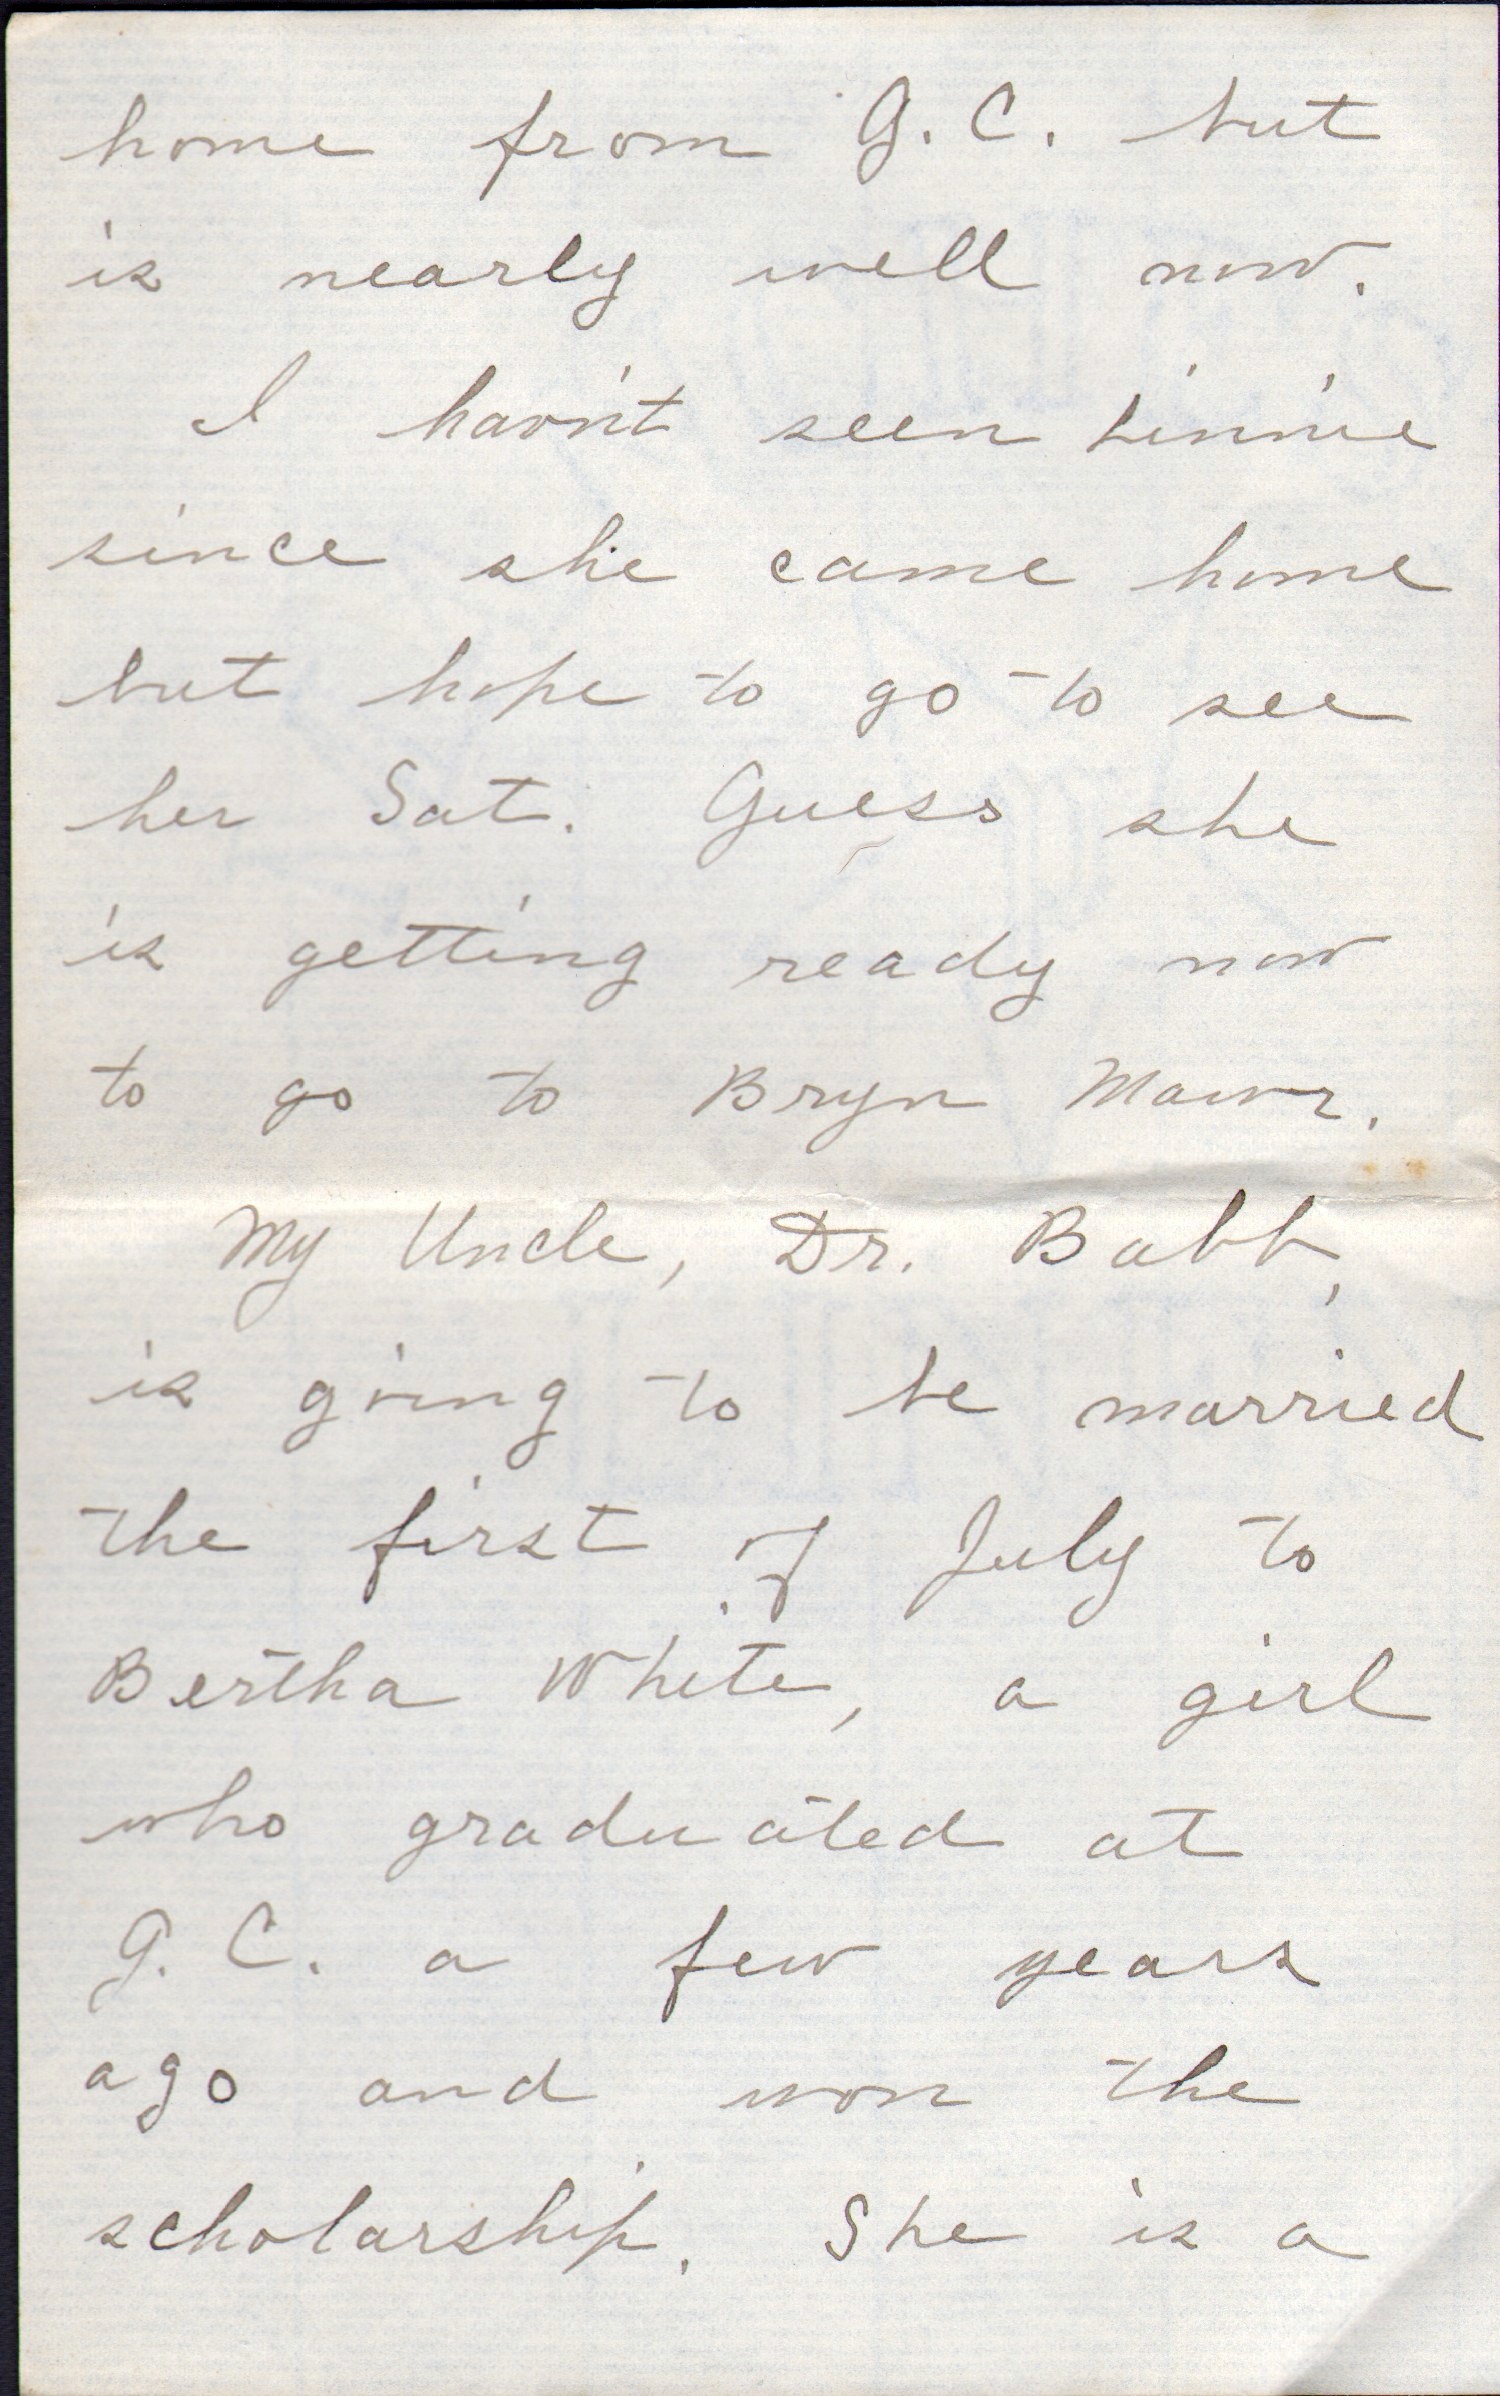 home from G. C. but
is nearly well now.
I havn't seen Linnie
since she came home
but hope to go to see
her Sat. Guess she
is getting ready now
to go to Bryn Mawr.
My Uncle, Dr. Babb,
is going to be married
the first of July to
Bertha White, a girl
who graduated at
G. C. a few years
ago and won the
scholarship. She is a